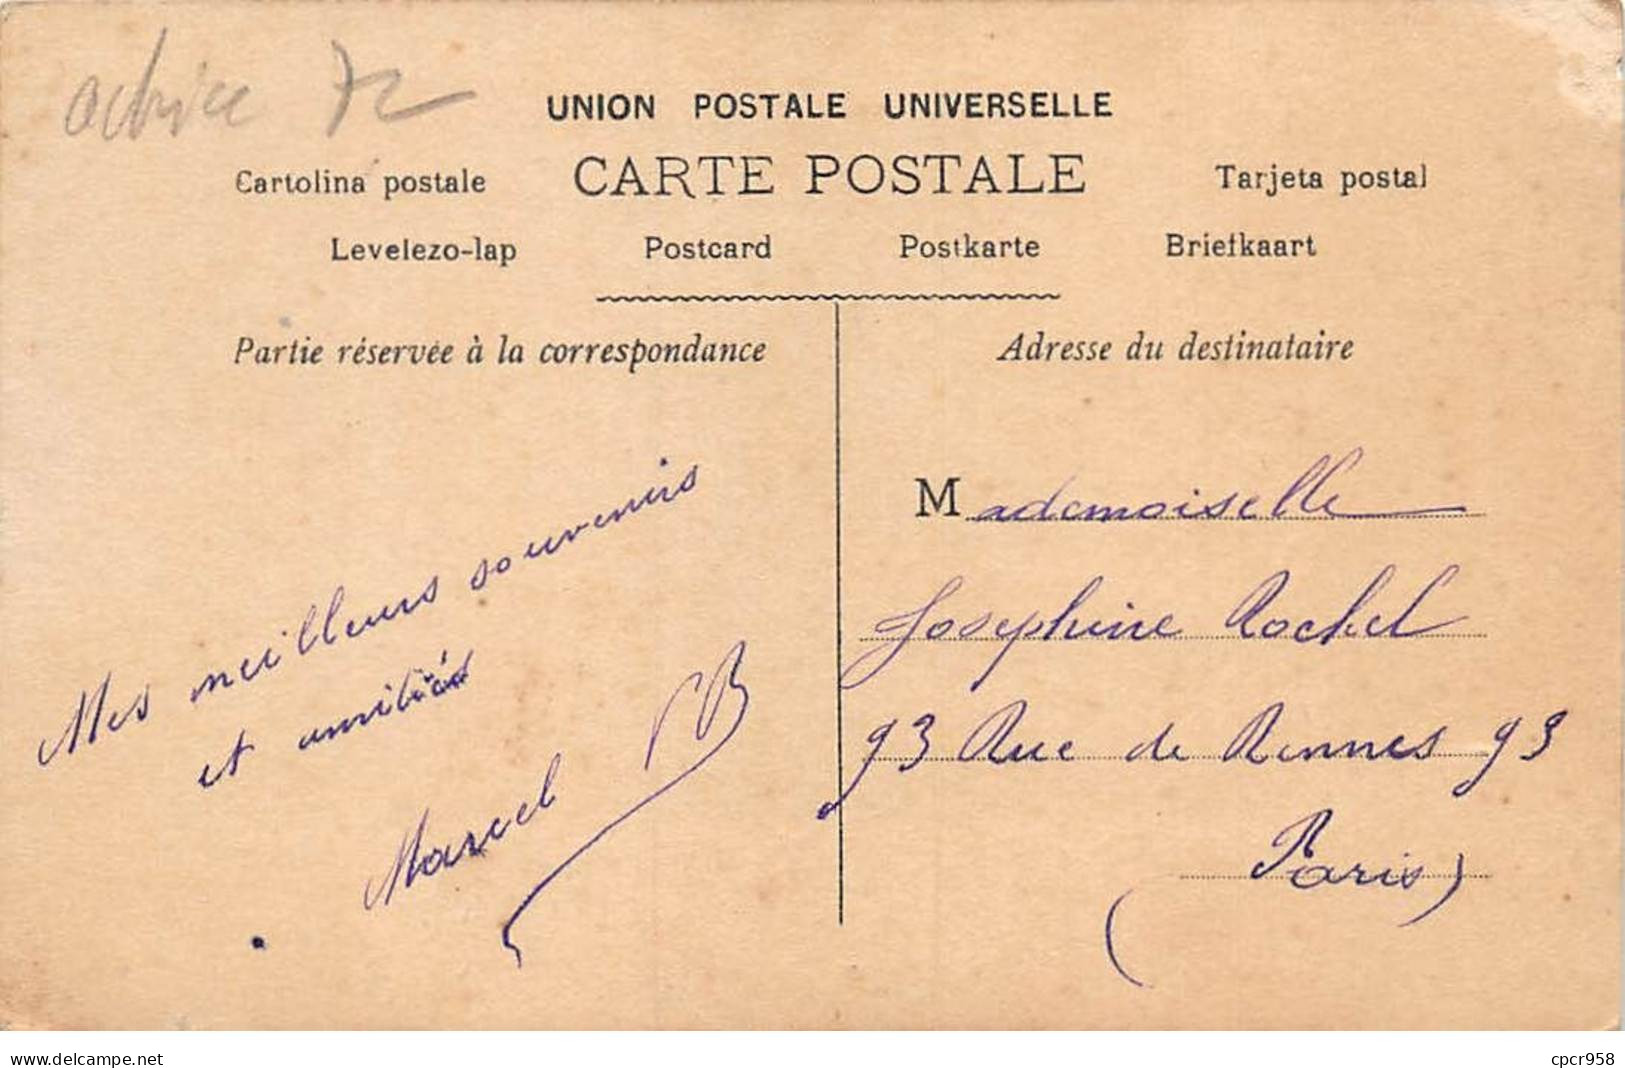 actrice 72
UNION POSTALE UNIVERSELLE
CARTE POSTALE
Cartolina postale
Tarjeta postal
Levelezo-lap
Postcard
Postkarte
Briefkaart
Partie réservée à la correspondance
Mes meilleurs souvenirs
et amitiés
Marcel B
Adresse du destinataire
Mademoiselle
Josephine Rochel
93 Rue de Rennes 93
(Paris)
www.delcampe.net
cpcr958